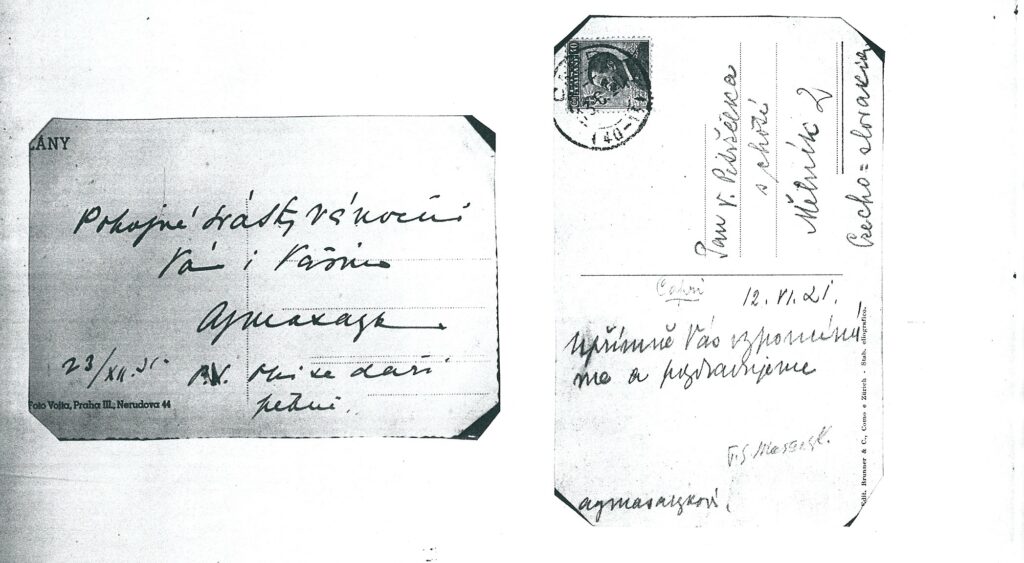 LÁNY
Pokojné svátky vánoční
Vám i Vašim
23/XII. 31.
P.S. se daří
pěkně.
Foto Vojta, Praha III., Nerudova 44
Pan V.
s chotí
Mělník 2
Czecho=slovakia
Capri
12. VI. 21.
Upřímně Vás vzpomíná
me a pozdravujeme
T. G. Masaryk.
agmasaryková.
Edit. Brunner & C., Como e Zürich - Stab. eliografico.